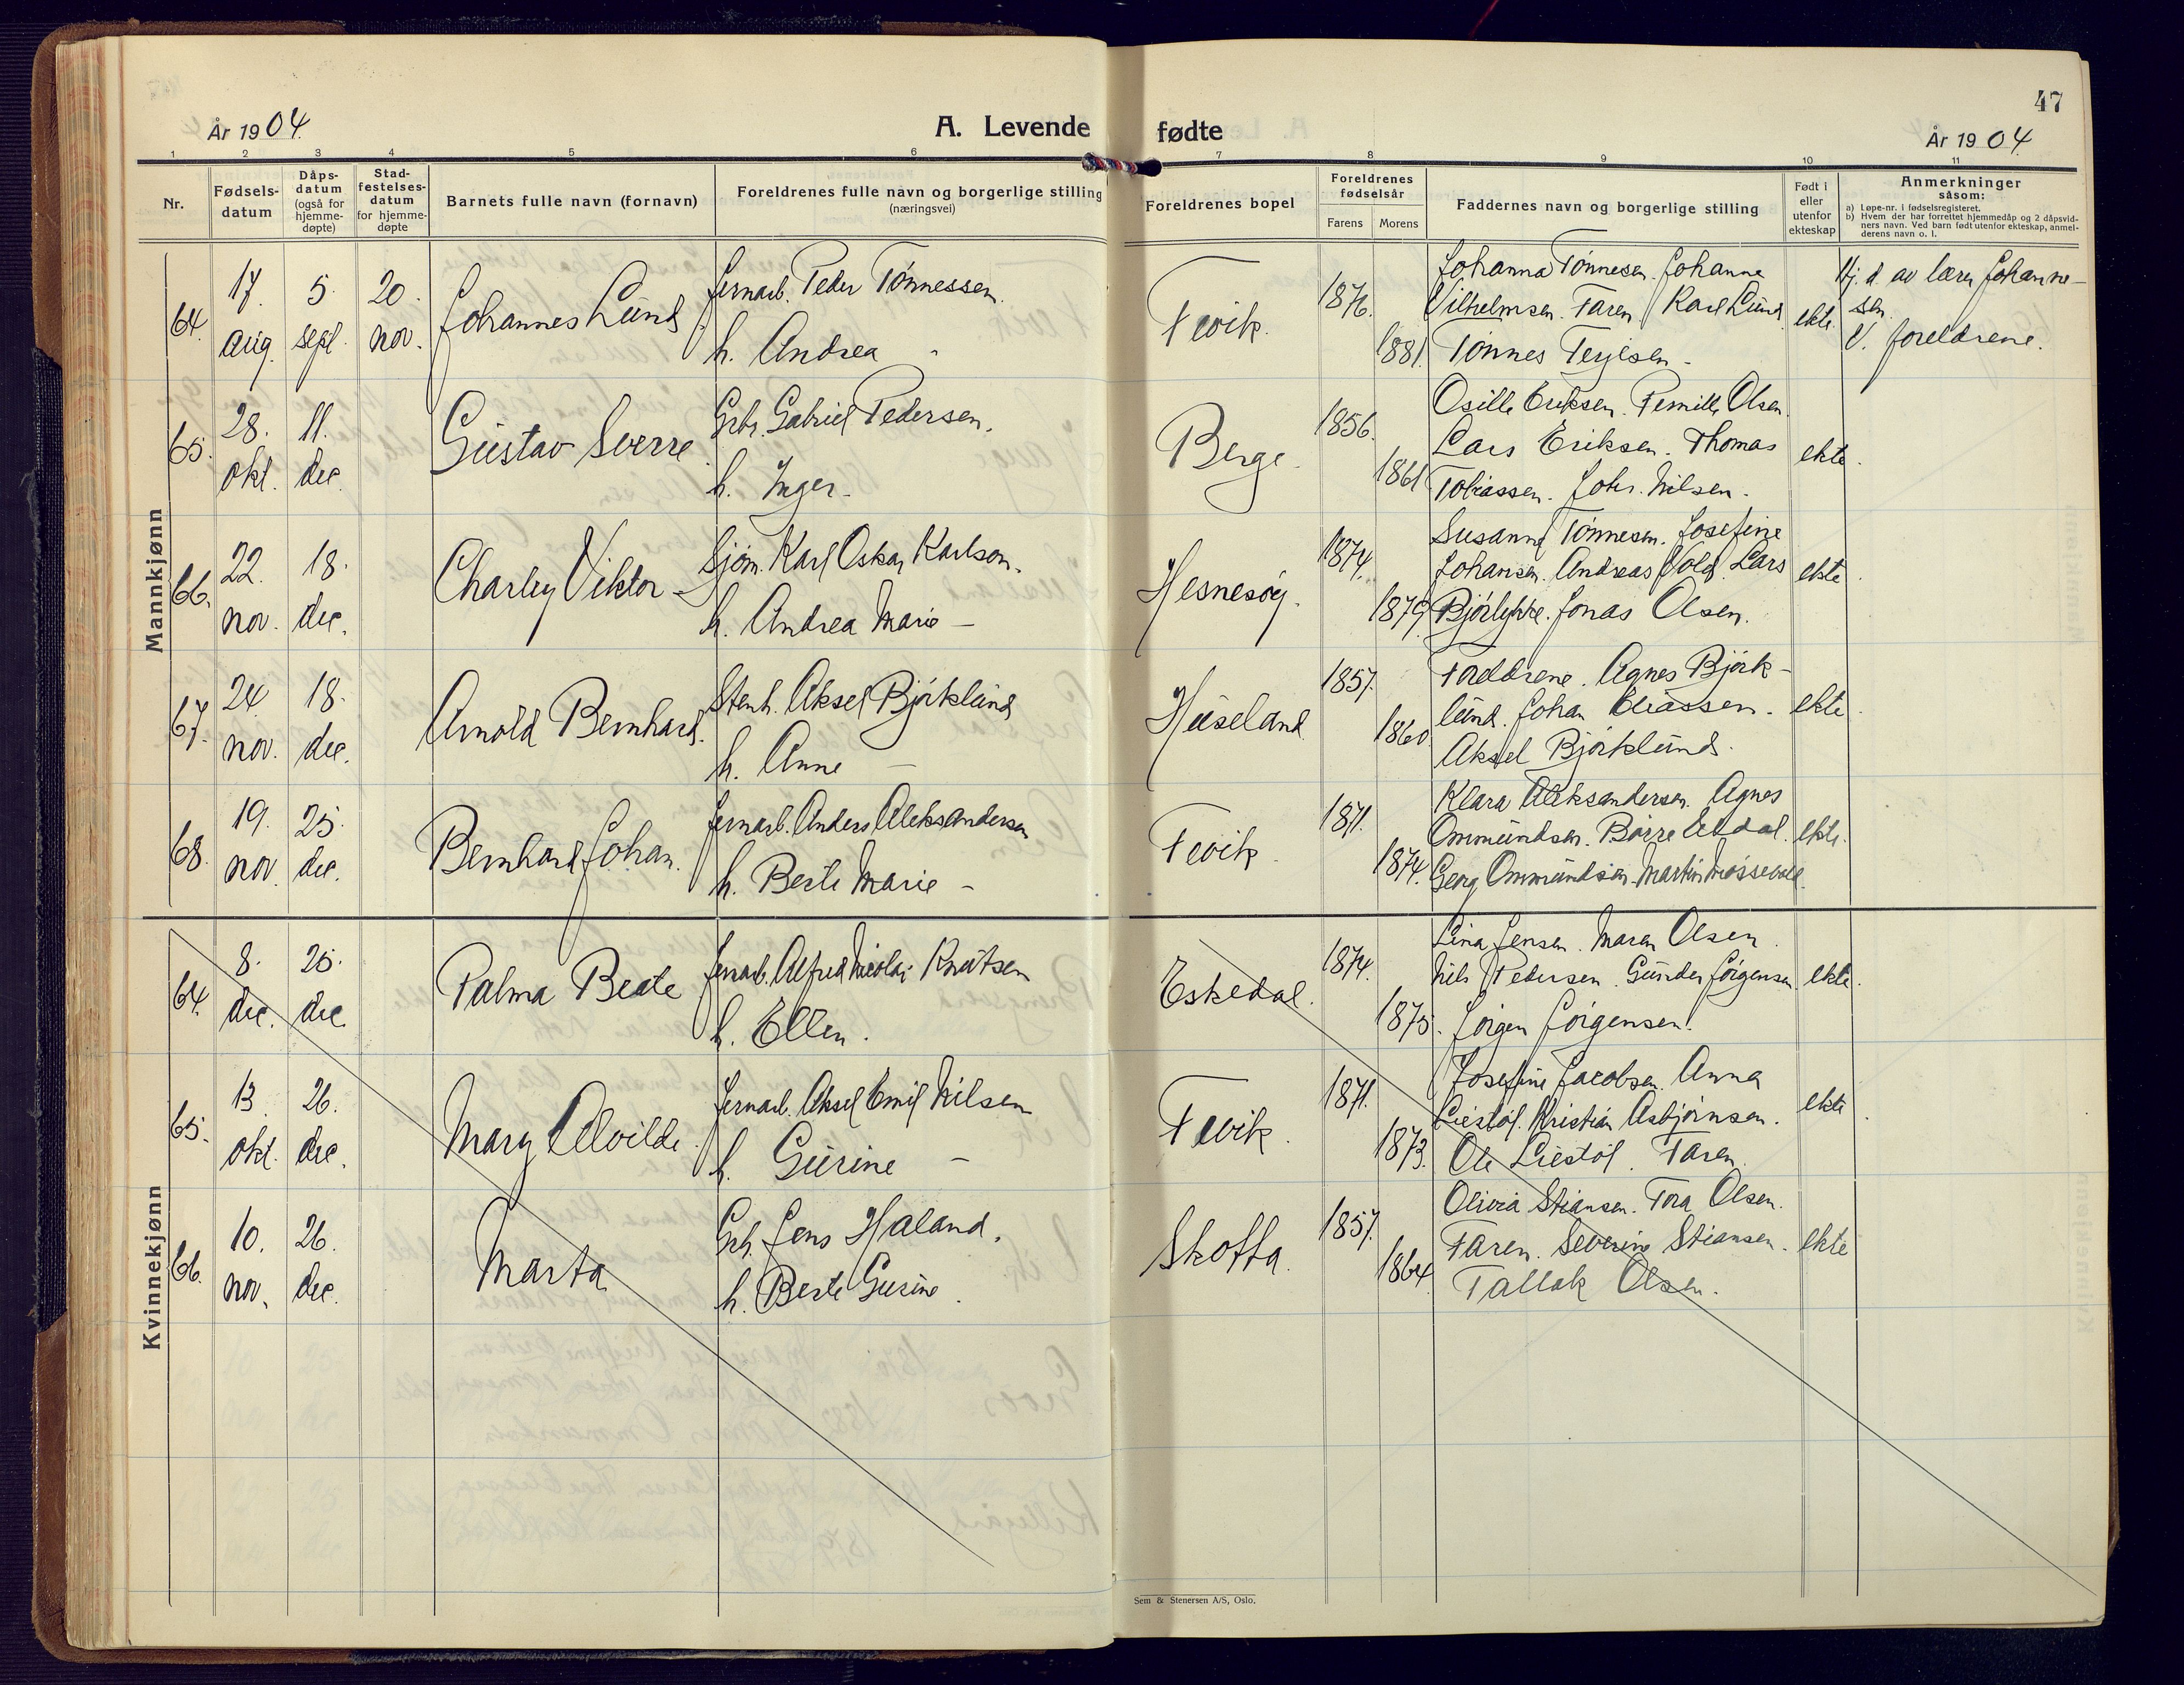 47
År 1904.
A. Levende fødte
År 1904.
1 2 3 4 5 6 7 8 9 10 11
Nr.
Fødsels-
datum
Dåps-
datum
(også for
hjemme-
døpte)
Stad-
festelses-
datum
for hjemme-
døpte
Barnets fulle navn (fornavn)
Foreldrenes fulle navn og borgerlige stilling
(næringsvei)
Foreldrenes bopel
Foreldrenes
fødselsår
Farens Morens
Faddernes navn og borgerlige stilling
Født i
eller
utenfor
ekteskap
Anmerkninger
såsom:
a) Løpe-nr. i fødselsregisteret.
b) Hvem der har forrettet hjemmedåp og 2 dåpsvid-
ners navn. Ved barn født utenfor ekteskap, anmel-
derens navn o. l.
Mannkjønn
64.
17.
aug.
5.
sept.
20.
nov.
Johannes Lund.
Jernarb. Peder Tønnessen.
h. Andrea -
Fevik.
1876.
1881.
Johanna Tønnesen. Johanne
Vilhelmsen. Faren. Karl Lund.
Tønnes Terjesen -
ekte.
Hj. d. av lærer Johanne-
sen.
V. foreldrene.
65.
28.
okt.
11.
dec.
Gustav Sverre.
Grbr. Gabriel Pedersen.
h. Inger -
Berge.
1856.
1861
Osille Eriksen. Pernille Olsen.
Lars Eriksen. Thomas
Tobiassen. Johs. Nilsen.
ekte.
66.
22.
nov.
18.
dec.
Charley Viktor -
Sjøm. Karl Oskar Karlson.
h. Andrea Marie -
Hesnesøy.
1874.
1879.
Susanne Tønnesen. Josefine
Johansen. Andreas Vold. Lars
Bjørlykke. Jonas Olsen.
ekte.
67.
24.
nov.
18.
dec.
Arnold Bernhard.
Stenh. Aksel Bjørklund
h. Anne -
Huseland
1857.
1860.
Foreldrene. Agnes Bjørk-
lund. Johan Eliassen.
Aksel Bjørklund.
ekte.
68.
19.
nov.
25.
dec.
Bernhard Johan.
Jernarb. Anders Aleksandersen
h. Berte Marie -
Fevik.
1871.
1874.
Klara Aleksandersen. Agnes
Ommundsen. Børre
Georg Ommundsen. Martin
ekte.
Kvinnekjønn
64.
8.
dec.
25.
dec.
Palma Beate
Jernarb. Alfred Nicolai Knutsen
h. Ellen.
Eskedal.
1874.
1875.
Lina Jensen. Maren Olsen.
Nils Pedersen. Gunder Jørgensen
Jørgen Jørgensen.
ekte.
65.
13.
okt.
26.
dec.
Mary Alvilde.
Jernarb. Aksel Emil Nilsen
h. Gurine -
Fevik.
1871.
1873.
Josefine Jacobsen. Anna
Liestøl. Kristian Asbjørnsen.
Ole Liestøl. Faren.
ekte.
66.
10.
nov.
26.
dec.
Marta
Grb. Jens Haland.
h. Berte Gurine.
Skofta.
1857.
1864.
Olivia Stiansen. Tora Olsen.
Faren. Severine Stiansen.
Tallak Olsen.
ekte
Sem & Stenersen A/S, Oslo.